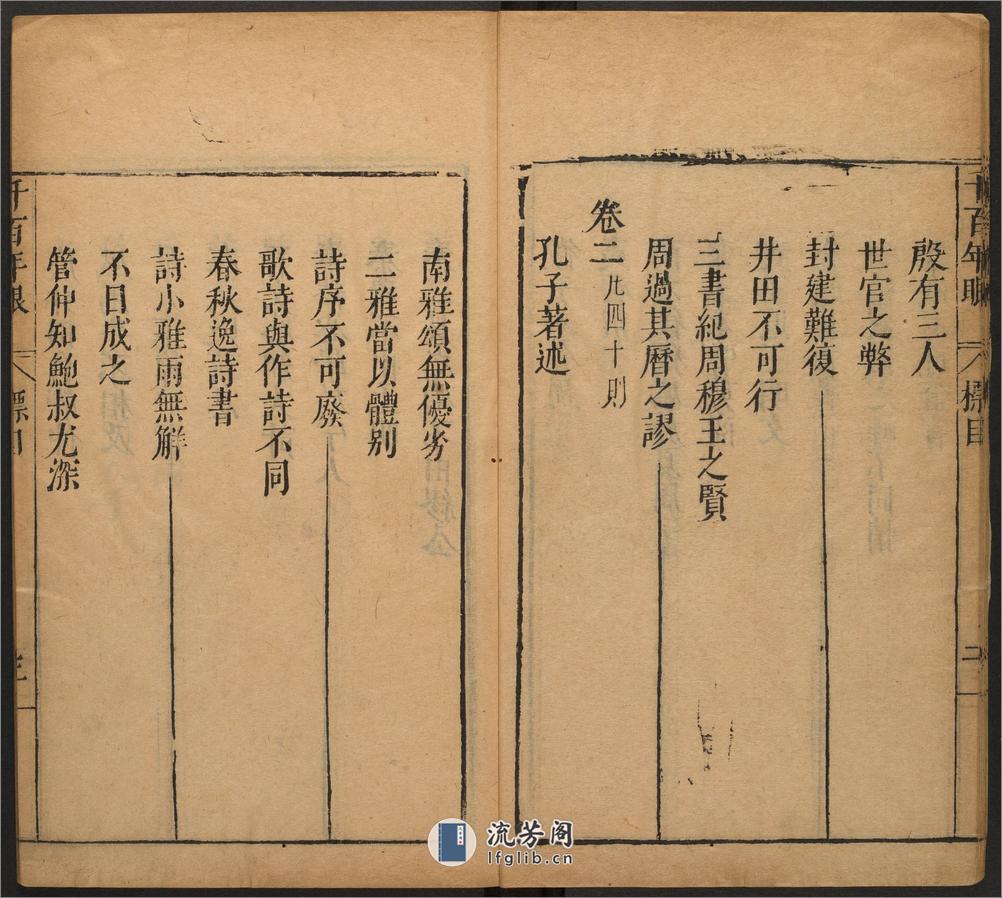 千百年眼 標目 二
殷有三人
世官之弊
封建難復
井田不可行
三書紀周穆王之賢
周過其曆之謬
卷二 凡四十則
孔子著述
南雅頌無優劣
二雅當以體別
詩序不可廢
歌詩與作詩不同
春秋逸詩書
詩小雅雨無觧
不日成之
管仲知鮑叔尤深
千百年眼 標目 三
流芳阁
lfglib.cn